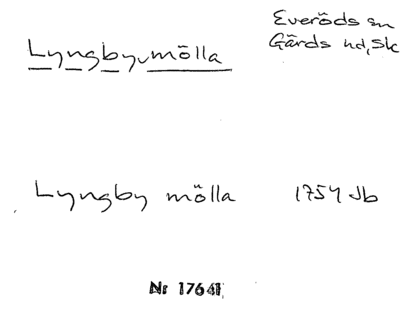 Everöds sn
Lyngby mölla Gärds hd, Sk
Lyngby mölla 1754 Jb
Nr 17641